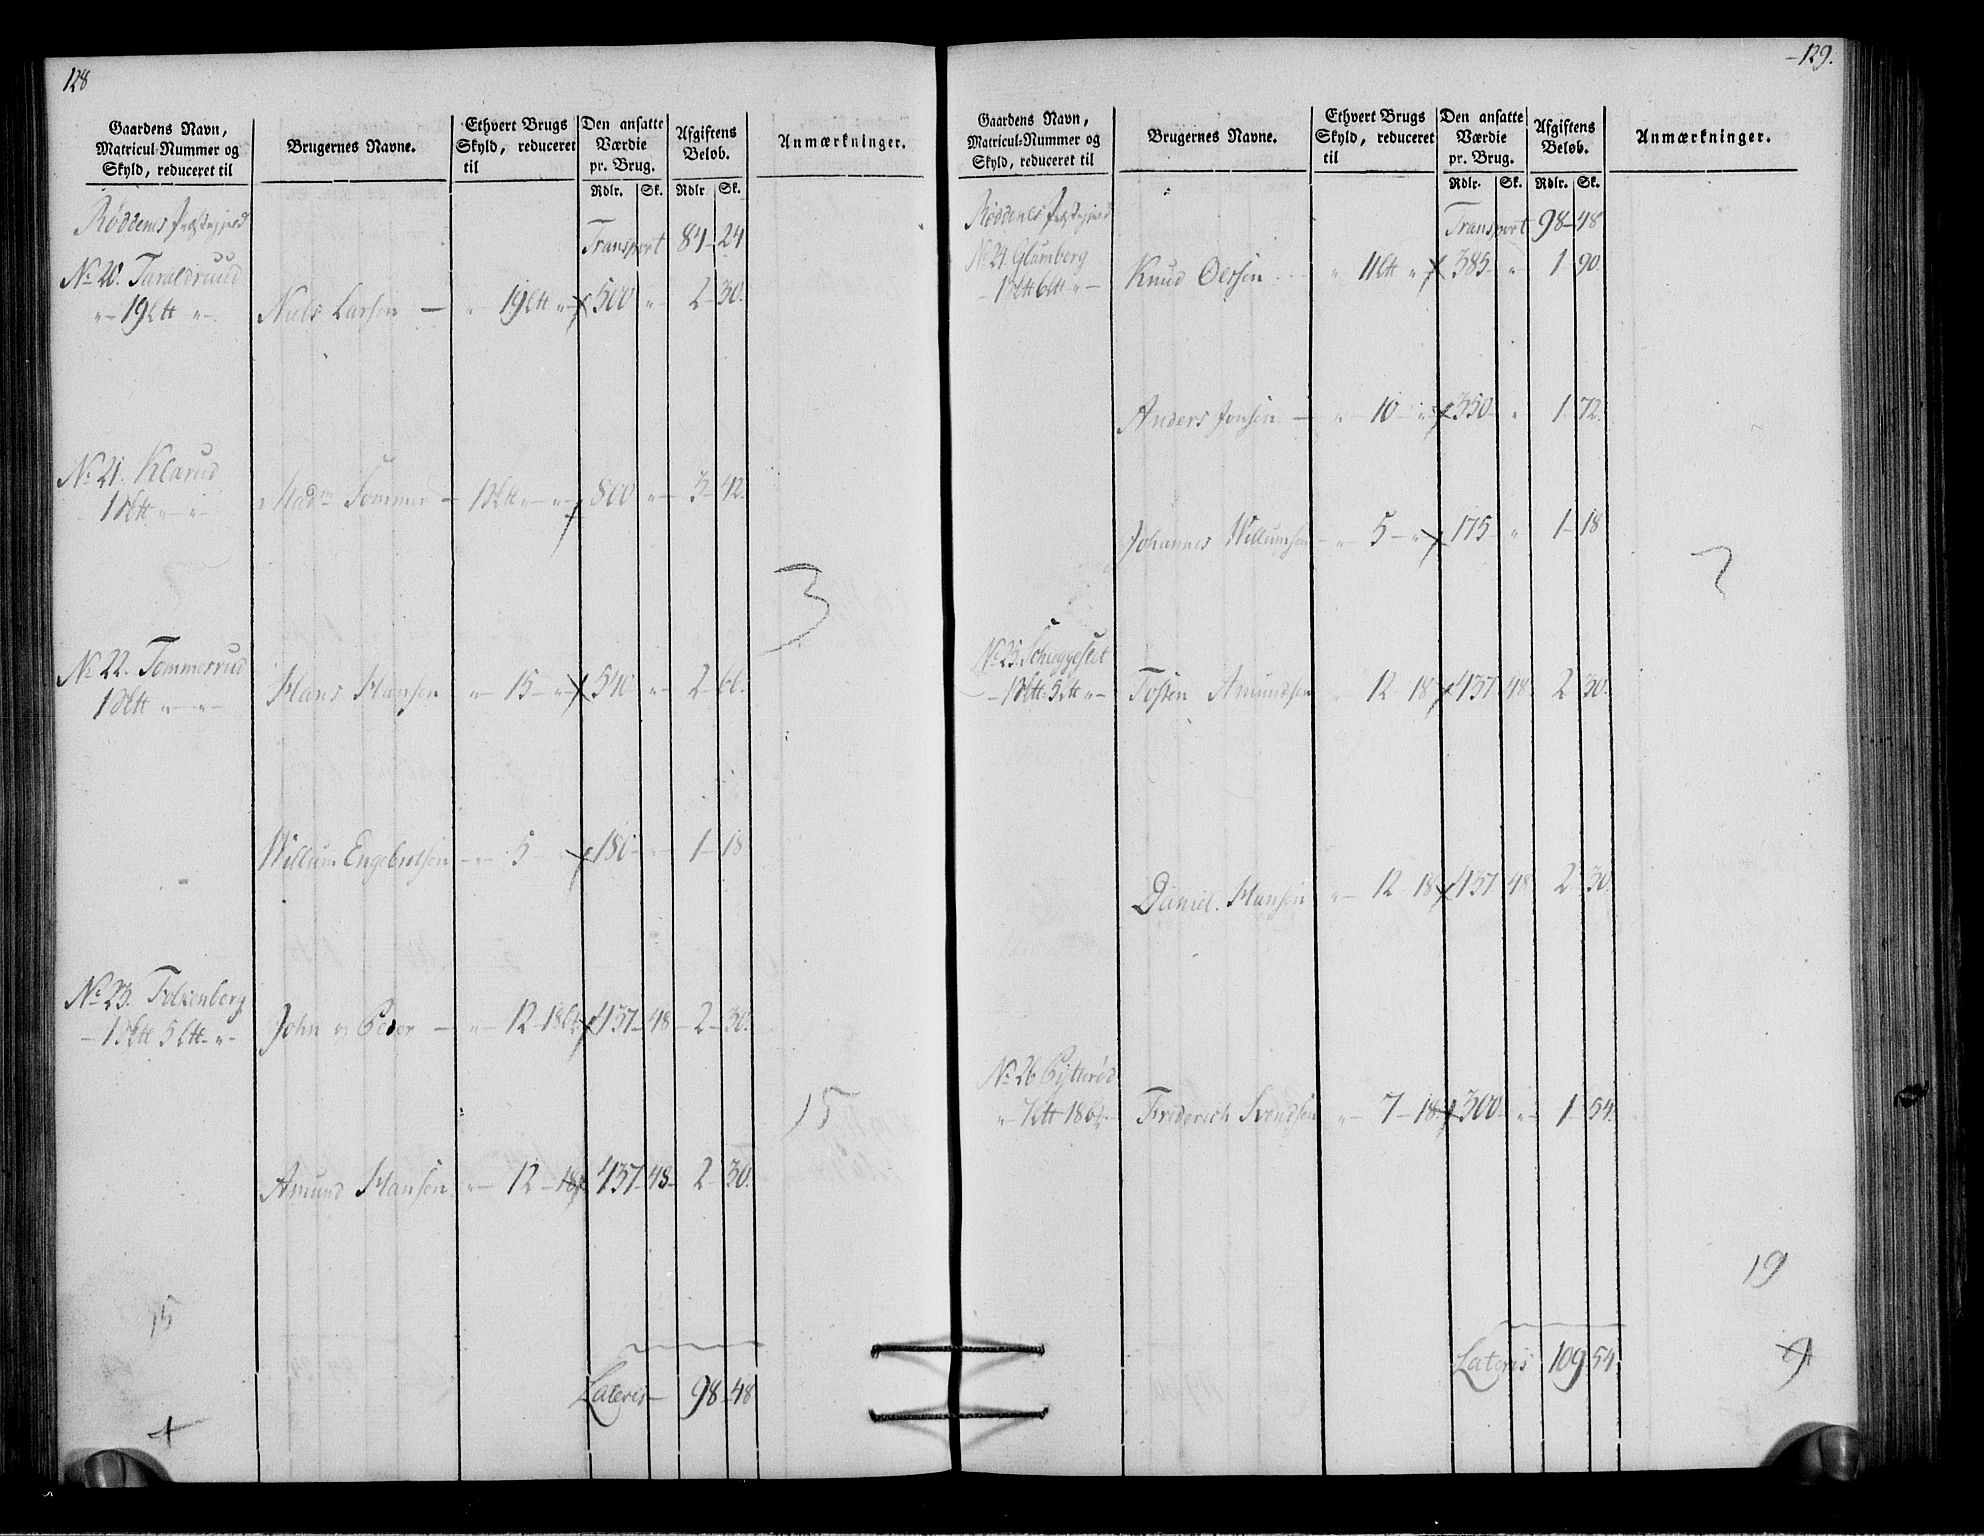 128
Gaardens Navn, Matricul-Nummer og Skyld, reduceret til
Brugernes Navne.
Ethvert Brugs Skyld, reduceret til
Den ansatte Værdie pr. Brug.
Afgiftens Beløb.
Anmærkninger.
Rdlr. Sk. Rdlr Sk.
Røddenes Præstegjeld
Transport 84 24
No 20. Taraldruud
19 Ltt Niels Larsen 19 Ltt 500 2 30.
No 21. Klarud
1 Sktt Madm Sommer 1 Sktt 800 3 42.
3
No 22. Tommesrud
1 Sktt Hans Hansen 15 540 2 66.
Willum Engebretsen 5 180 1 18
No 23. Folkenborg
1 Sktt 5 Ltt John og Peder 12 18 437 48 2 30.
15
Amund Hansen 12 18 437 48 2 30.
15
Lateris 98 48
129.
Gaardens Navn, Matricul-Nummer og Skyld, reduceret til
Brugernes Navne.
Ethvert Brugs Skyld, reduceret til
Den ansatte Værdie pr. Brug.
Afgiftens Beløb.
Anmærkninger.
Rdlr. Sk. Rdlr. Sk.
Røddenes Præstegjeld
Transport 98 48
No 24 Glumberg
1 Sktt 6 Ltt Knud Olssen 11 Ltt 385 1 90.
Anders Jonsen 10 350 1 72.
Johannes Willumsen 5 175 1 18
No 25.
1 Sktt 5 Ltt Tosten Amundsen 12 18 437 48 2 30.
Daniel Hansen 12 18 437 48 2 30.
No 26
7 Ltt 18 Frederich Svendsen 7 18 300 1 54.
19
Lateris 109 54